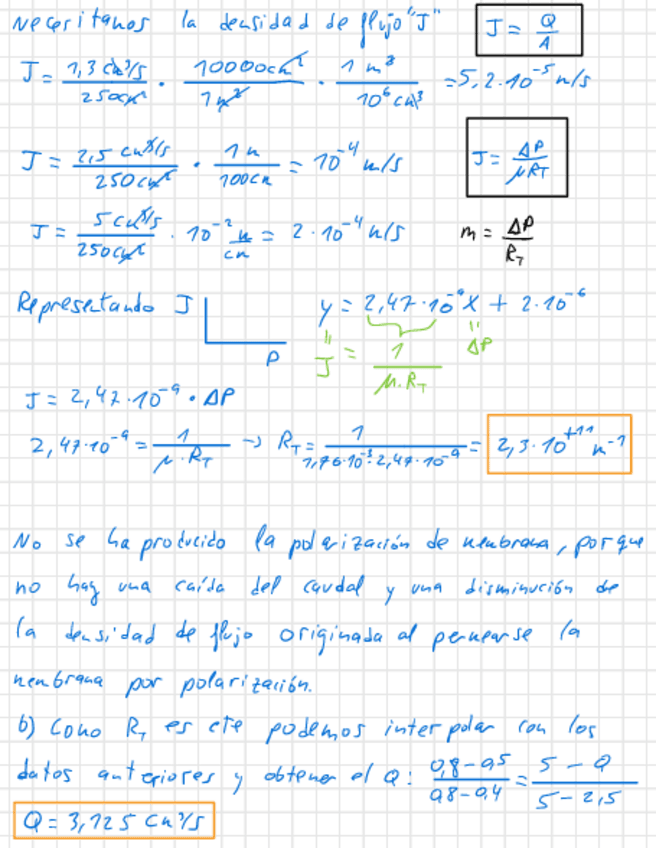 Necesitamos la densidad de flujo "J" J = Q/A
J = 1,3 cm³/s / 250cm² · 10000cm² / 1m² · 1 m³ / 10⁶ cm³ = 5,2·10⁻⁵ m/s
J = 2,5 cm³/s / 250 cm² · 1m / 100cm = 10⁻⁴ m/s J = ΔP / μR_T
J = 5 cm³/s / 250cm² · 10⁻² m/cm = 2·10⁻⁴ m/s m = ΔP / R_T
Representando J P y = 2,47·10⁻⁹X + 2·10⁻⁶
J = 1 / μ·R_T ΔP
J = 2,47·10⁻⁹ · ΔP
2,47·10⁻⁹ = 1 / μ·R_T → R_T = 1 / 1,76·10⁻³·2,47·10⁻⁹ = 2,3·10⁺¹¹ m⁻¹
No se ha producido la polarización de membrana, porque
no hay una caída del caudal y una disminución de
la densidad de flujo originada al permearse la
membrana por polarización.
b) Como R_T es cte podemos interpolar con los
datos anteriores y obtener el Q: 0,8-0,5 / 0,8-0,4 = 5-Q / 5-2,5
Q = 3,125 cm³/s